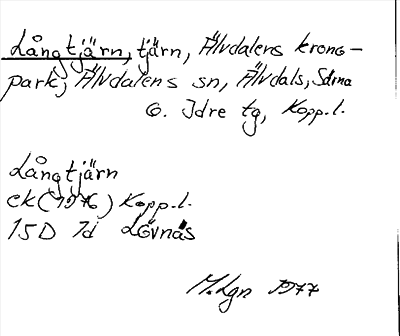 Långtjärn, tjärn, Älvdalens krono-
park, Älvdalens sn, Älvdals, Särna
o. Idre tg, Kopp.l.
Långtjärn
ek (1976) Kopp.l.
15D 7d Lövnäs
M.Lgn 1977